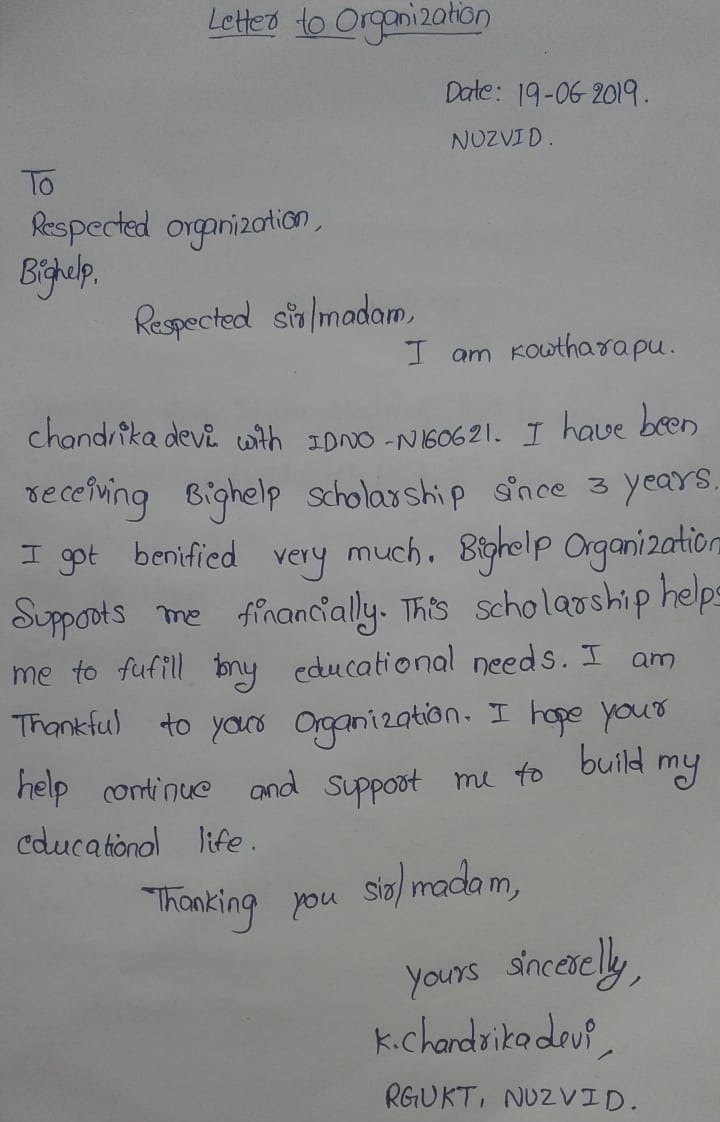 Letter to Organization
Date: 19-06-2019.
NUZVID.
To
Respected organization,
Bighelp.
Respected sir/madam,
I am Kowtharapu.
chandrika devi with IDNO -N160621. I have been
receiving Bighelp scholarship since 3 years.
I got benified very much. Bighelp Organization
Supports me financially. This scholarship helps
me to fufill my educational needs. I am
Thankful to your Organization. I hope your
help continue and support me to build my
educational life.
Thanking you sir/madam,
yours sincerelly,
K.Chandrika devi,
RGUKT, NUZVID.